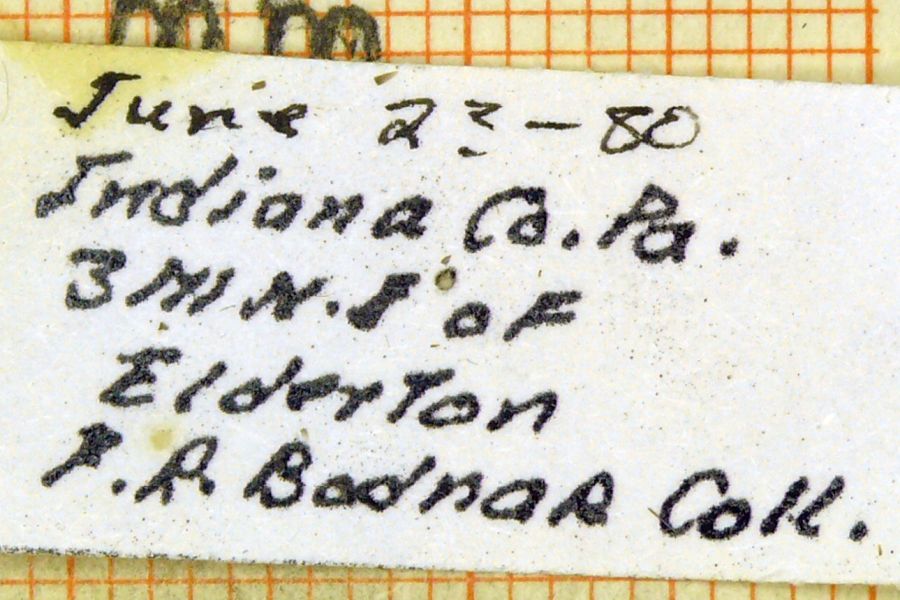 mm
June 23-80
Indiana Co. Pa.
3 MI N.E of
Elderton
P.R Bodnar Coll.